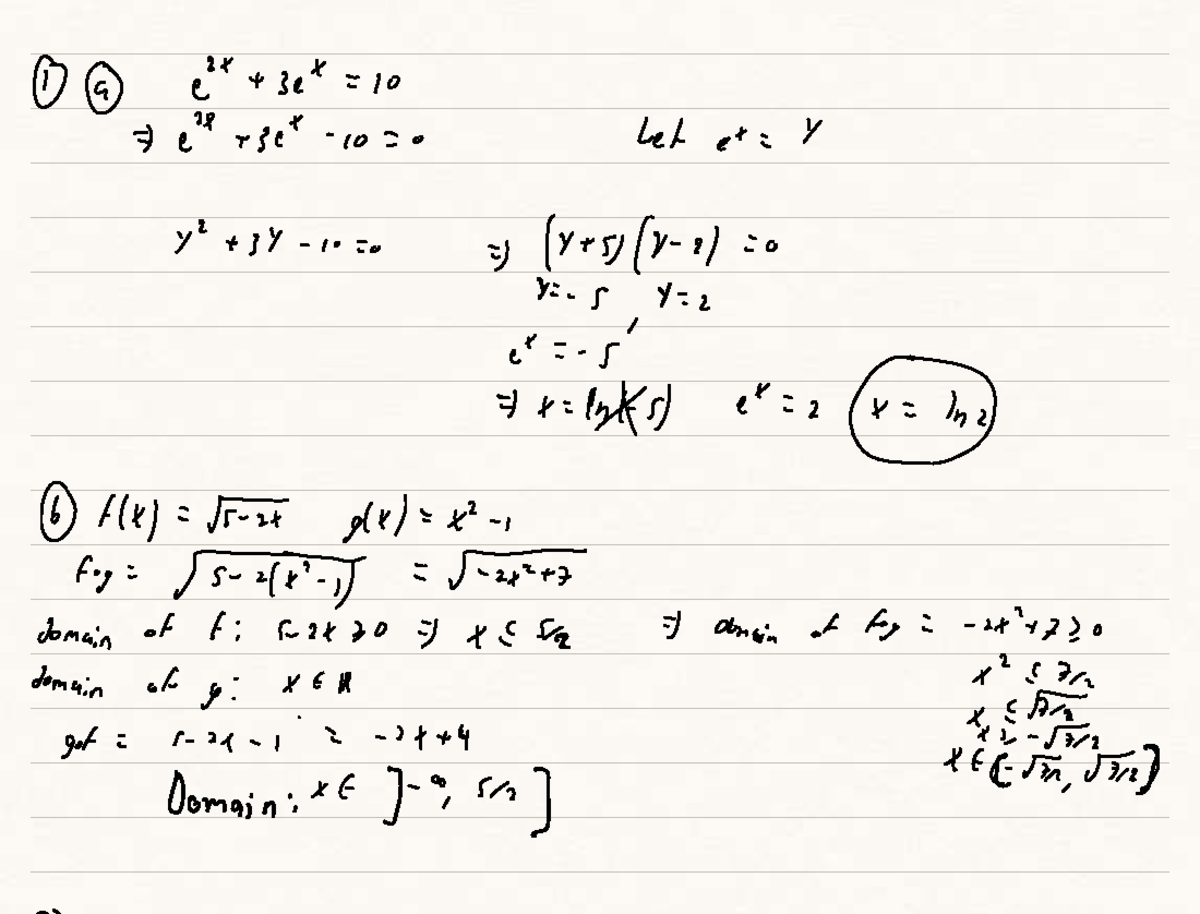 ① ⓐ e^{2x} + 3e^x = 10
⇒ e^{2x} + 3e^x - 10 = 0 Let e^x = y
y² + 3y - 10 = 0 ⇒ (y + 5)(y - 2) = 0
y = -5, y = 2
e^x = -5
⇒ x = ln(-5) e^x = 2 x = ln 2
ⓑ f(x) = √(5-2x) g(x) = x² - 1
fog = √(5 - 2(x² - 1)) = √(-2x² + 7)
domain of f: 5-2x ≥ 0 ⇒ x ≤ 5/2 ⇒ domain of fog = -2x² + 7 ≥ 0
x² ≤ 7/2
domain of g: x ∈ ℝ
x ≤ √(7/2)
x ≥ -√(7/2)
gof = 5-2x-1 = -2x+4
x ∈ [-√(7/2), √(7/2)]
Domain: x ∈ ]-∞, 5/2]